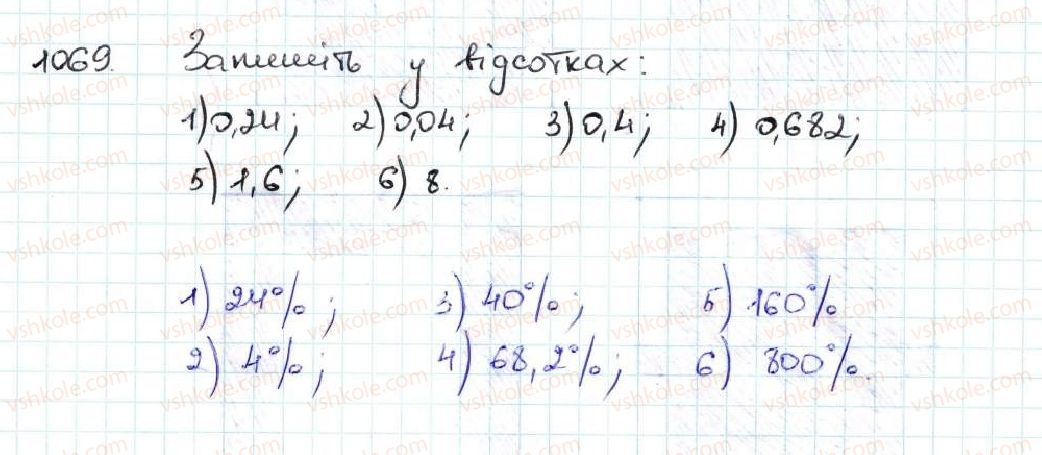 1069. Запишіть у відсотках:
1) 0,24; 2) 0,04; 3) 0,4; 4) 0,682;
5) 1,6; 6) 8.
1) 24%; 3) 40%; 5) 160%
2) 4%; 4) 68,2%; 6) 800%.